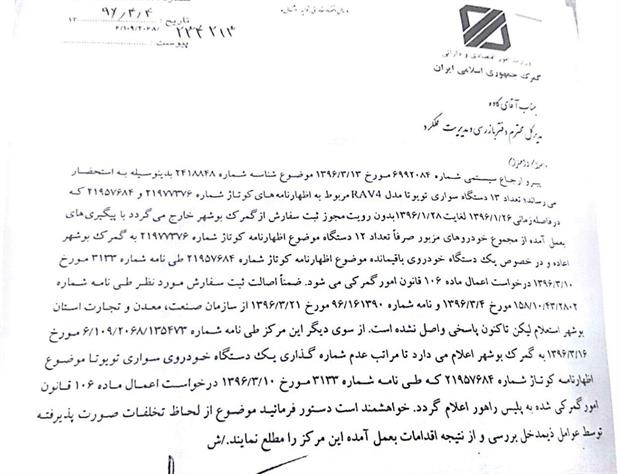 تاریخ: ۹۶/۴/۴
۲۳۴۲۱۳
پیوست
وزارت امور اقتصادی و دارائی
گمرک جمهوری اسلامی ایران
جناب آقای کاوه
مدیرکل محترم دفتر بازرسی و مدیریت عملکرد
پیرو ارجاع سیستمی شماره ۶۹۹۲۰۸۴ مورخ ۱۳۹۶/۳/۱۳ موضوع شناسه شماره ۲۴۱۸۸۴۸ بدینوسیله به استحضار
می رساند؛ تعداد ۱۳ دستگاه سواری تویوتا مدل RAV4 مربوط به اظهارنامه‌های کوتاژ شماره ۲۱۹۷۷۳۷۶ و ۲۱۹۵۷۶۸۴ که
درفاصله زمانی ۱۳۹۶/۱/۲۶ لغایت ۱۳۹۶/۱/۲۸ بدون رویت مجوز ثبت سفارش از گمرک بوشهر خارج می گردد با پیگیری‌های
بعمل آمده از مجموع خودروهای مزبور صرفاً تعداد ۱۲ دستگاه موضوع اظهارنامه کوتاژ شماره ۲۱۹۷۷۳۷۶ به گمرک بوشهر
اعاده و در خصوص یک دستگاه خودروی باقیمانده موضوع کوتاژ شماره ۲۱۹۵۷۶۸۴ طی نامه شماره ۳۱۳۳ مورخ
۱۳۹۶/۳/۱۰ درخواست اعمال ماده ۱۰۶ قانون امورگمرکی می شود. ضمناً اصالت ثبت سفارش مورد نظر طی نامه شماره
۱۵۸/۱۰/۴۳/۲۸۰۲ مورخ ۱۳۹۶/۳/۴ و نامه شماره ۹۶/۱۶۱۳۹۰ مورخ ۱۳۹۶/۳/۲۱ از سازمان صنعت، معدن و تجارت استان
بوشهر استعلام لیکن تاکنون پاسخی واصل نشده است. از سوی دیگر این مرکز طی نامه شماره ۶/۱۰۹/۲۰۶۸/۱۳۵۴۷۳ مورخ
۱۳۹۶/۳/۱۶ به گمرک بوشهر اعلام می دارد تا مراتب عدم شماره گذاری یک دستگاه خودروی سواری تویوتا موضوع
اظهارنامه کوتاژ شماره ۲۱۹۵۷۶۸۴ که طی نامه شماره ۳۱۳۳ مورخ ۱۳۹۶/۳/۱۰ درخواست اعمال ماده ۱۰۶ قانون
امورگمرکی شده به پلیس راهور اعلام گردد. خواهشمند است دستور فرمائید موضوع از لحاظ تخلفات صورت پذیرفته
توسط عوامل ذیمدخل بررسی و از نتیجه اقدامات بعمل آمده این مرکز را مطلع نمایند./ش